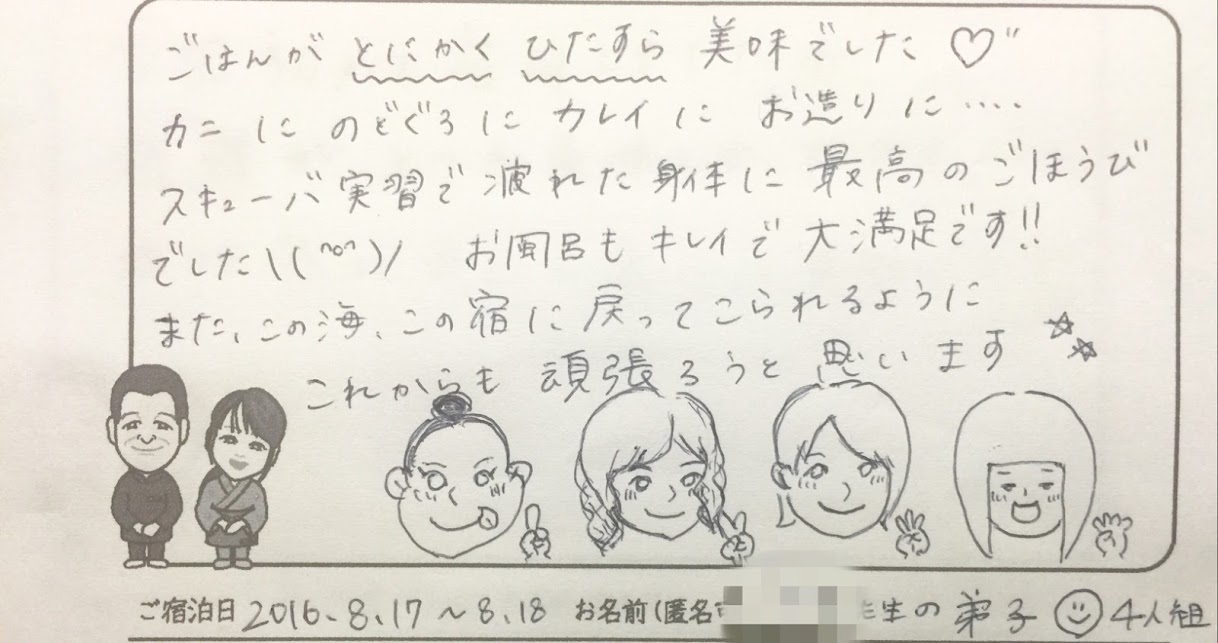 ごはんが とにかく ひたすら 美味でした♡"
カニに のどぐろに カレイに お造りに‥‥
スキューバ実習で疲れた身体に最高のごほうび
でした\(^o^)/ お風呂もキレイで大満足です!!
また、この海、この宿に戻ってこられるように
これからも頑張ろうと思います
ご宿泊日 2016.8.17～8.18 お名前(匿名 生の弟子 4人組